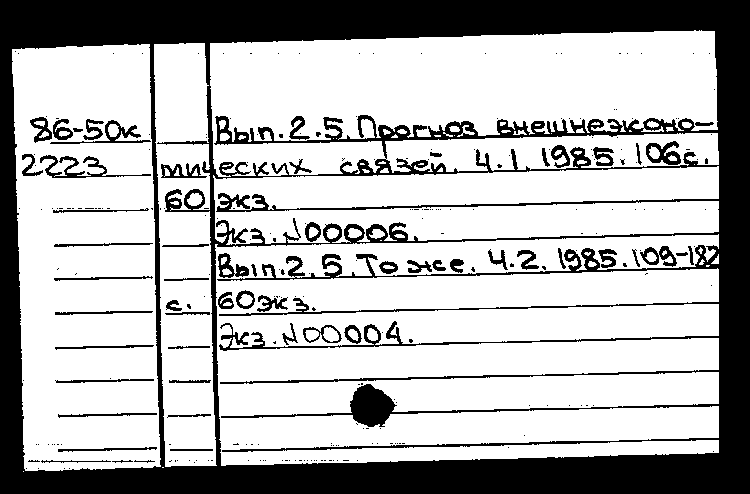 86-50к Вып.2.5. Прогноз внешнеэконо-
2223 мических связей. Ч.1. 1985. 106с.
60 экз.
Экз. N00006.
Вып.2.5. То же. Ч.2. 1985. 109-182
с. 60экз.
Экз. N00004.